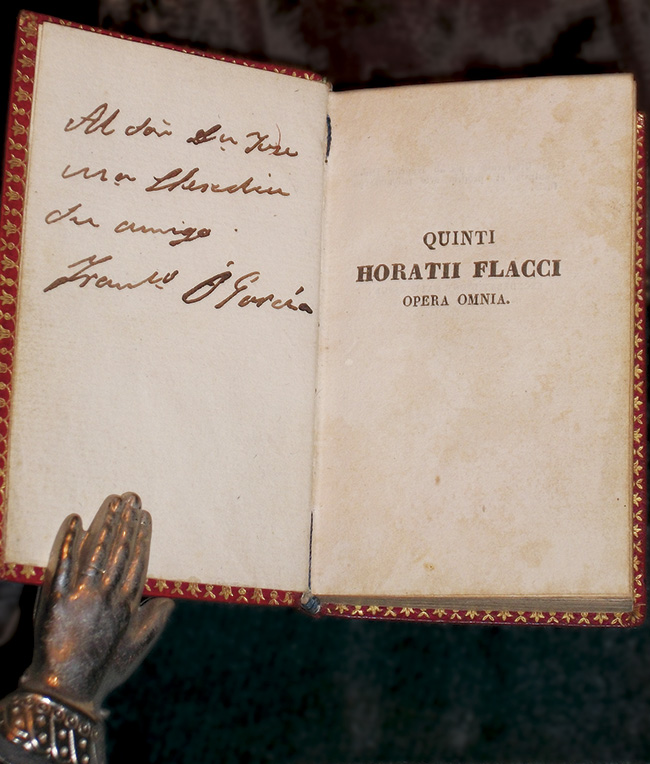 Al Sõr Dn Jose
su amigo
Franco Ó Garcia
QUINTI
HORATII FLACCI
OPERA OMNIA.